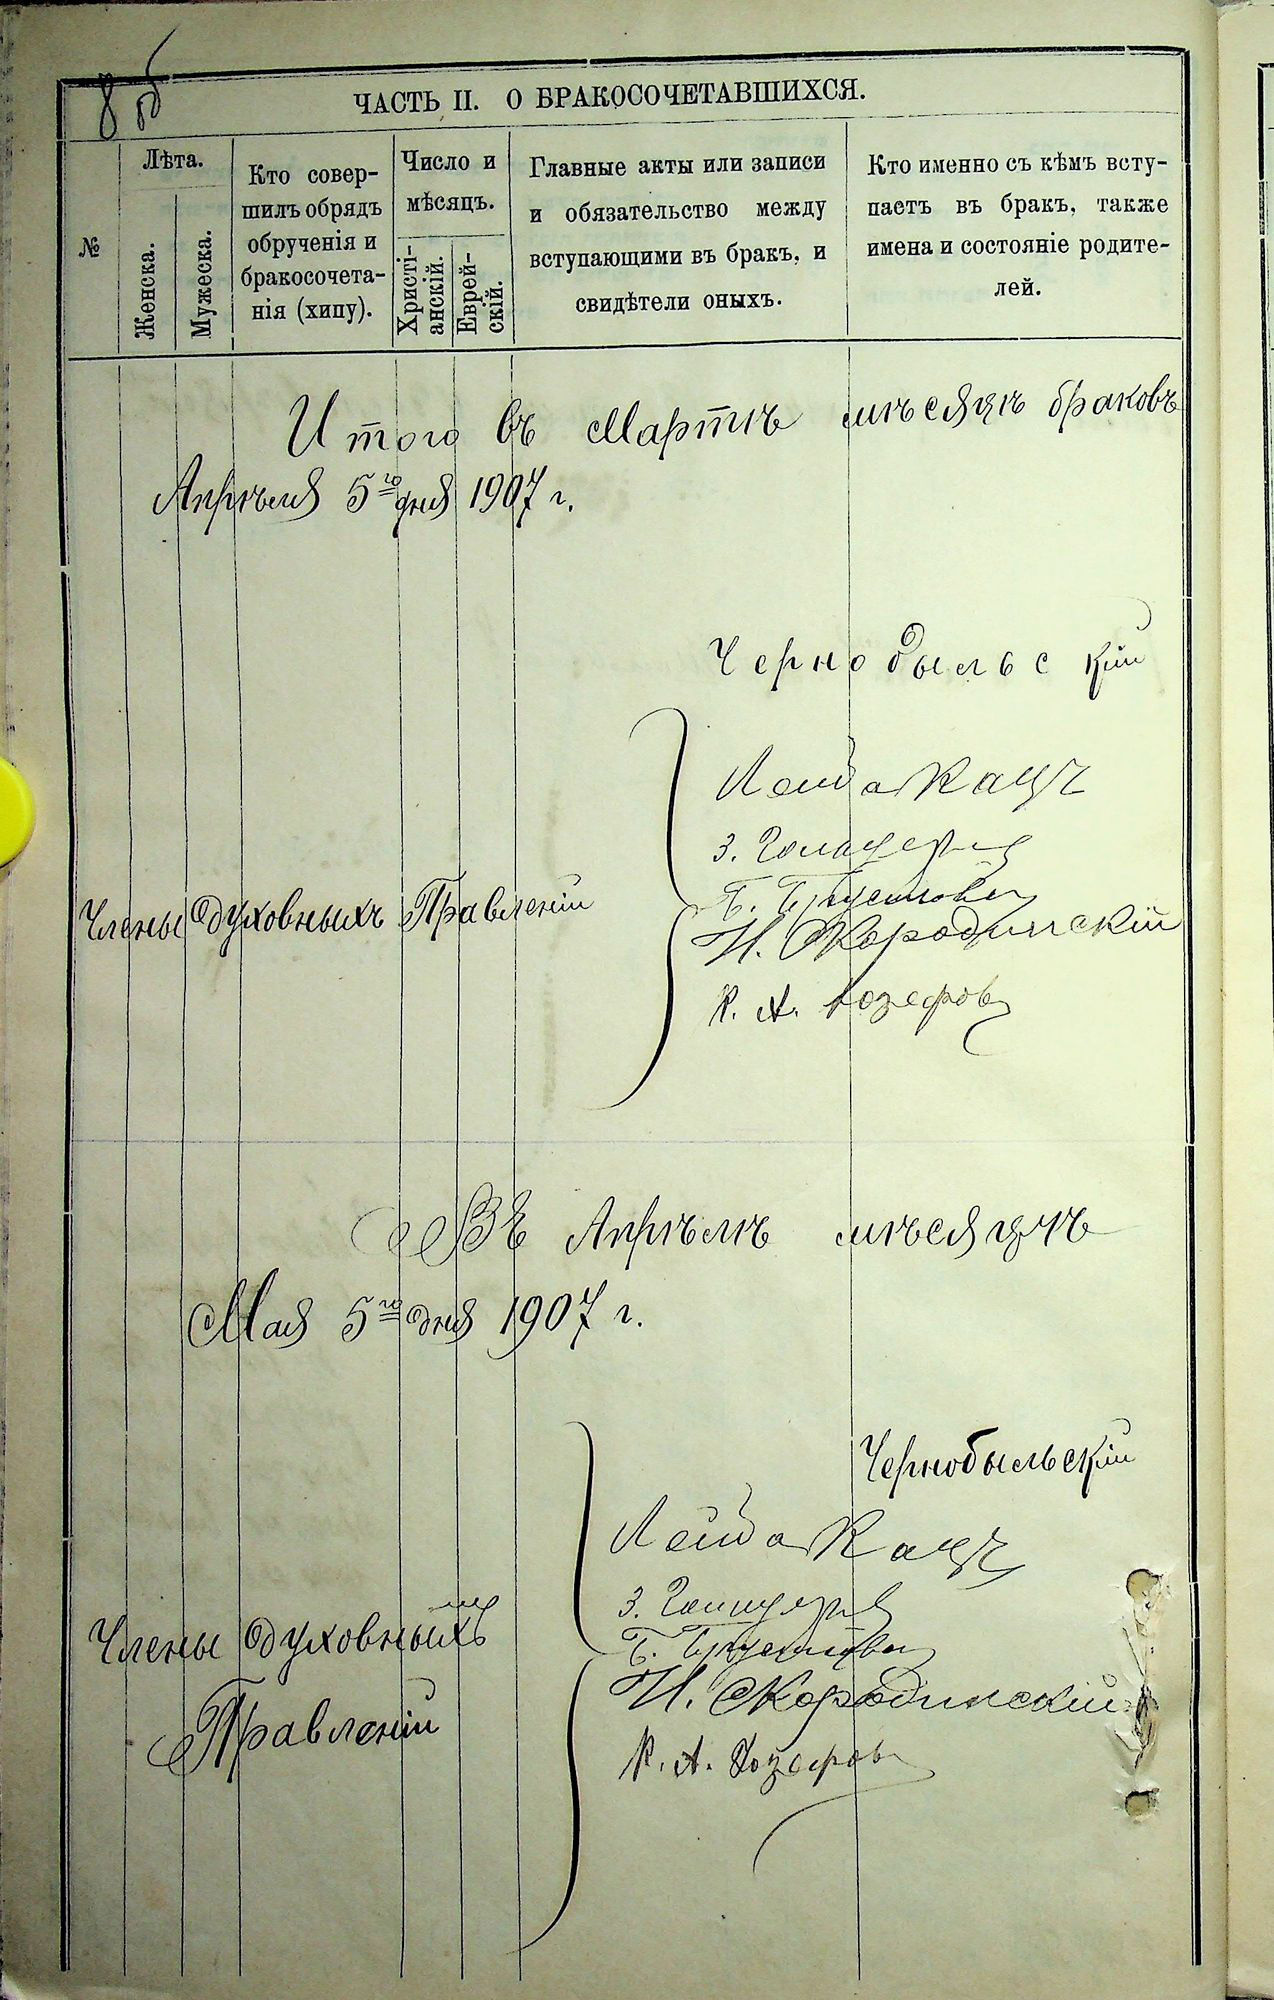 8 об
ЧАСТЬ II. О БРАКОСОЧЕТАВШИХСЯ.
№
Лѣта.
Женска.
Мужеска.
Кто совер-
шилъ обрядъ
обрученія и
бракосочета-
нія (хипу).
Число и
мѣсяцъ.
Христі-
анскій.
Еврей-
скій.
Главные акты или записи
и обязательство между
вступающими въ бракъ, и
свидѣтели оныхъ.
Кто именно съ кѣмъ всту-
паетъ въ бракъ, также
имена и состояніе родите-
лей.
Итого въ Мартѣ мѣсяцѣ браковъ
Апрѣля 5го дня 1907 г.
Чернобыльскій
Лейба Кацъ
З.
Б.
Члены духовныхъ Правленій
И. Скородинскій
К. А. Іозефовъ
Въ Апрѣлѣ мѣсяцѣ
Мая 5го дня 1907 г.
Чернобыльскій
Лейба Кацъ
З.
Члены духовныхъ
Б.
И. Скородинскій
Правленій
К. А. Іозефовъ